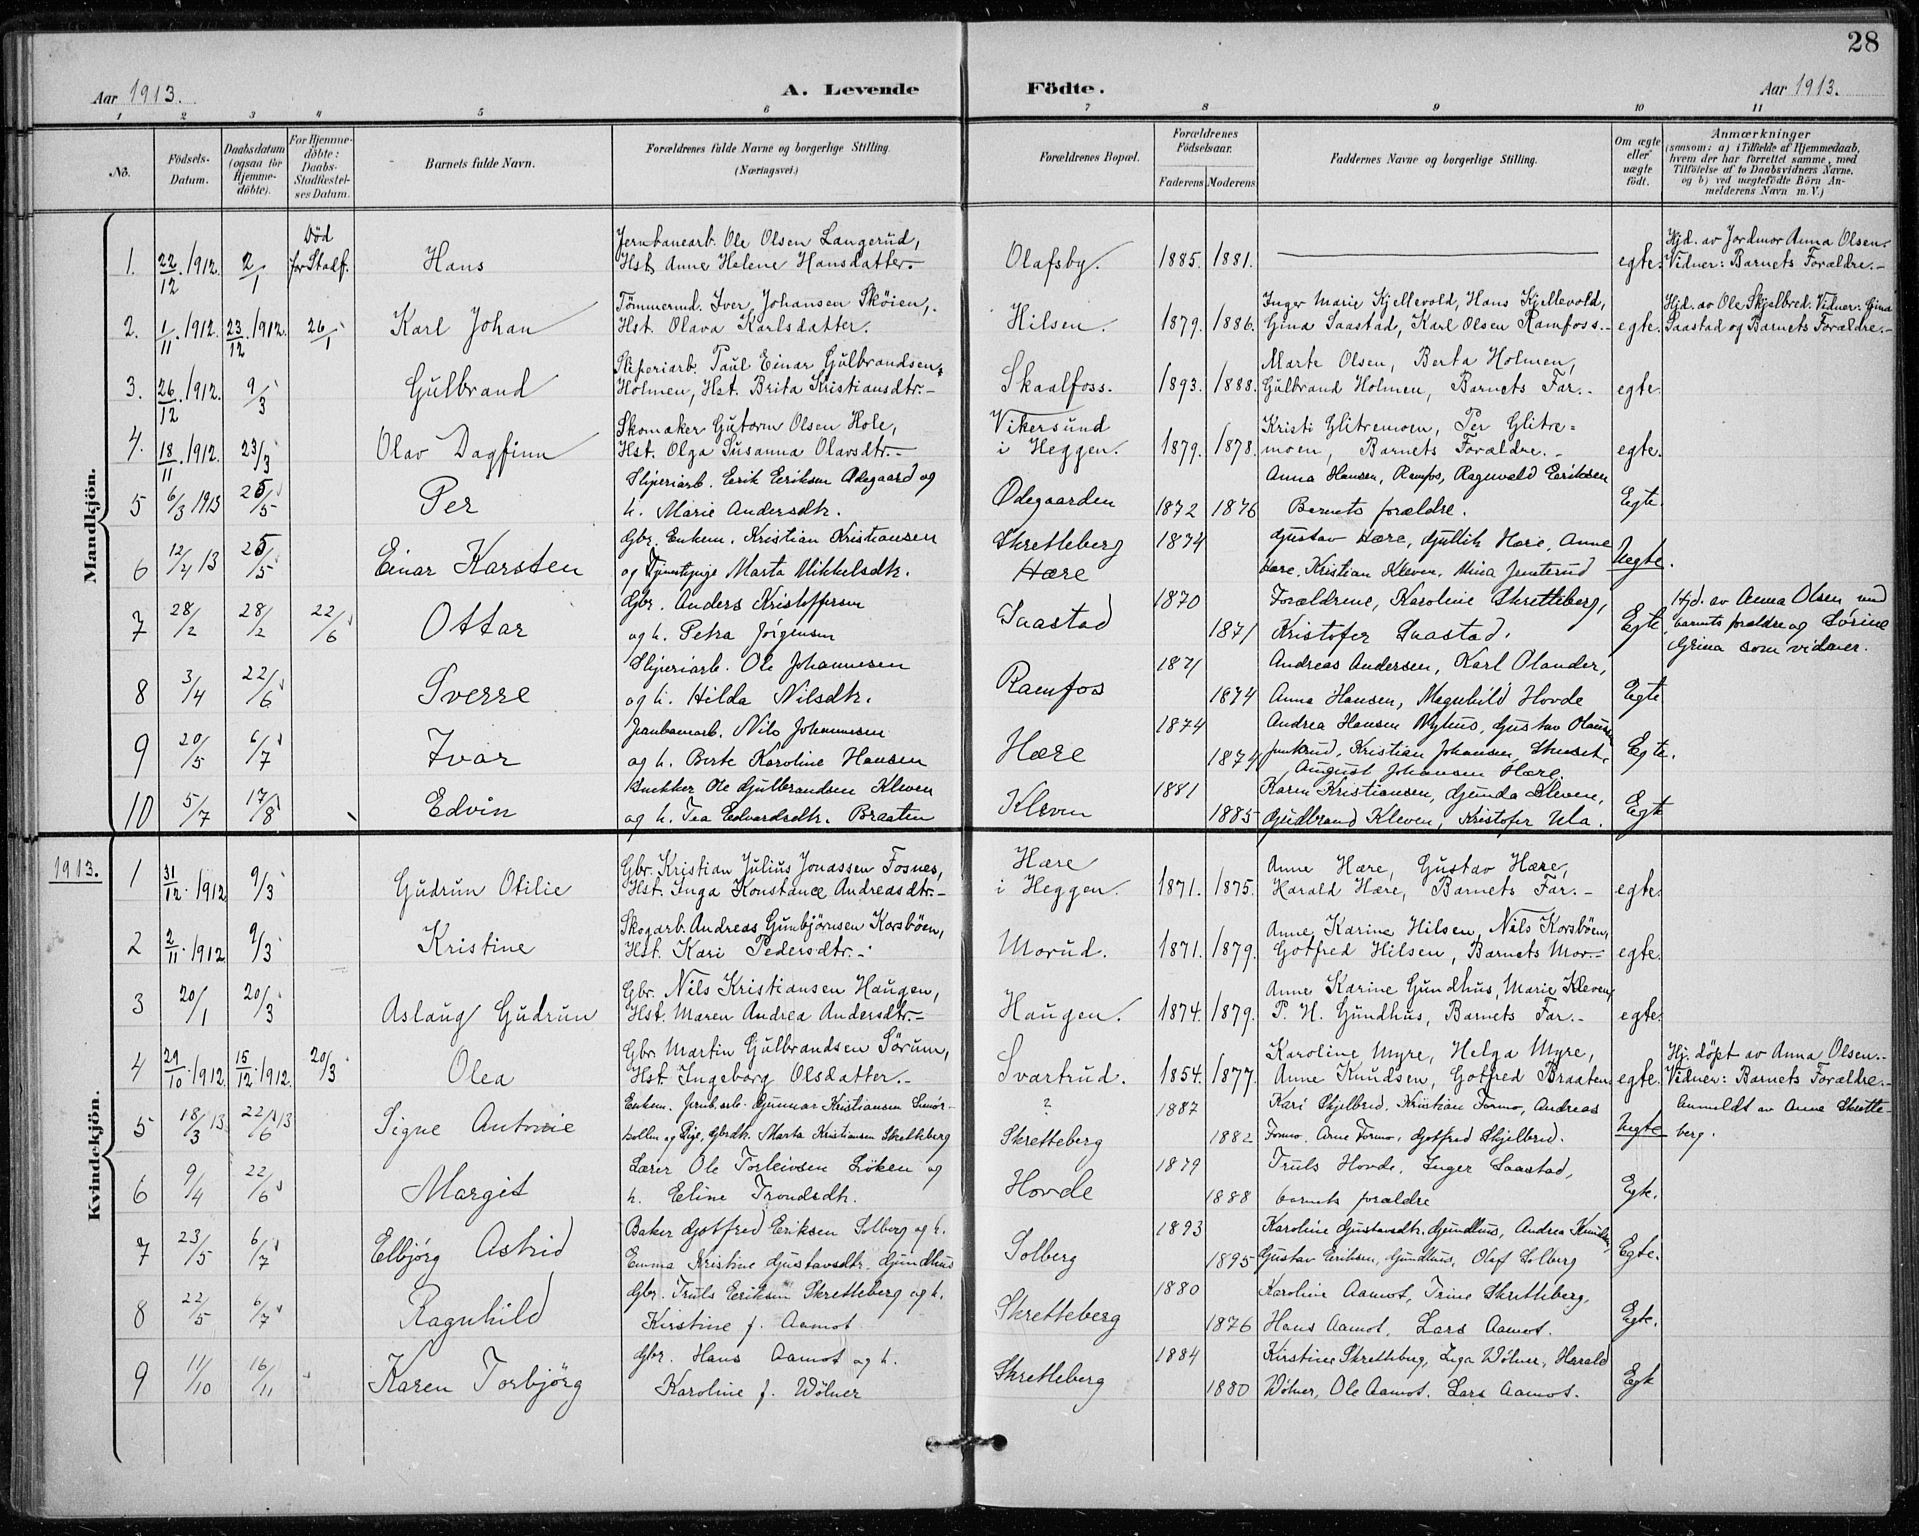 28
Aar 1913. A. Levende Födte. Aar 1913.
1 2 3 4 5 6 7 8 9 10 11
No. Födsels-Datum. Daabsdatum (ogsaa for Hjemme-döbte). For Hjemme-döbte: Daabs-Stadfæstel-ses Datum. Barnets fulde Navn. Forældrenes fulde Navne og borgerlige Stilling. (Næringsvei.) Forældrenes Bopæl. Forældrenes Födselsaar. Faderens Moderens Faddernes Navne og borgerlige Stilling. Om ægte eller uægte födt. Anmærkninger (saasom: a) i Tilfælde af Hjemmedaab, hvem der har forrettet samme, med Tilföielse af to Daabsvidners Navne, og b) ved uægtefödte Börn An-melderens Navn m. V.)
Mandkjön.
1. 22/12. 1912. 2/1 Död før Stadf. Hans Jernbanearb. Ole Olsen Langerud, Hst. Anne Helene Hansdatter.- Olafsby. 1885. 1881. egte. Hjd. av Jordmor Anna Olsen. Vidner: Barnets Forældre.-
2. 1/11. 1912. 23/12. 1912. 26/1 Karl Johan Tömmermd. Iver Johansen Sköien, Hst. Olava Karlsdatter. Hilsen. 1879. 1886. Inger Marie Kjellevold, Hans Kjellevold, Gina Saastad, Karl Olsen Ramfoss.- egte. Hjd. av Ole Skjelbred. Vidner: Gina Saastad og Barnets Forældre.-
3. 26/12. 1912. 9/3 Gulbrand Sliperiarb. Paul Einar Gulbrandsen Holmen, Hst. Brita Kristiansdtr.- Skaalfoss. 1893. 1888. Marte Olsen, Berta Holmen, Gulbrand Holmen, Barnets Far.- egte.
4. 18/11. 1912. 23/3 Olav Dagfinn Skomaker Gutorm Olsen Hole, Hst. Olga Susanna Olavsdtr.- Vikersund i Heggen. 1879. 1878. Kristi Glitremoen, Per Glitre=moen, Barnets Forældre.- egte.
5 6/3 1913 25/5 Per Sliperiarb. Erik Eriksen Ødegaard og h. Marie Andersdtr. Ødegaarden 1872 1876 Anna Hansen, Ramfos, Ragnvald Eriksen Barnets forældre. Egte.
6 12/4 13 25/5 Einar Karsten Gbr. Enkem. Kristian Kristiansen og Tjenestpige Marta Mikkelsdtr. Skretteberg Hære 1874 Gustav Hære, Gullik Hære, Anne Hære, Kristian Kleven, Mina Uegte.
7 28/2 28/2 22/6 Ottar Gbr. Anders Kristoffersen og h. Petra Jørgensen Saastad 1870 1871 Forældrene, Karoline Skretteberg, Kristofer Saastad. Egte. Hjd. av Anna Olsen med barnets forældre og Sørine Grina som vidner.
8 3/4 22/6 Sverre Sliperiarb. Ole Johannesen og h. Hilda Nilsdtr. Ramfos 1871 1874 Andreas Andersen, Karl Olander, Anna Hansen, Magnhild Hovde Egte
9 20/5 6/7 Ivar Jernbanearb. Nils Johannesen og h. Berte Karoline Hansen Hære 1874 1874 Andrea Hansen Nyhus, Gustav Olausen Kristian Johansen August Johansen Hære. Egte.
10 5/7 17/8 Edvin Snekker Ole Gulbrandsen Kleven og h. Tea Edvardsdtr. Braaten Kleven 1881 1885 Karen Kristiansen, Gunda Kleven, Gudbrand Kleven, Kristofer Ula. Egte
1913.
Kvindekjön.
1 31/12. 1912 9/3 Gudrun Otilie Gbr. Kristian Julius Jonassen Fosnes, Hst. Inga Konstance Andreasdtr.- Hære i Heggen. 1871. 1875. Anne Hære, Gustav Hære, Harald Hære, Barnets Far.- egte.
2 2/11. 1912 9/3 Kristine Skogarb. Andreas Gunbjørnsen Korsböen, Hst. Kari Pedersdtr.- Morud. 1871. 1879. Anne Karine Hilsen, Nils Korsböen, Gotfred Hilsen, Barnets Mor.- egte.
3 20/1 20/3 Aslaug Gudrun Gbr. Nils Kristiansen Haugen, Hst. Maren Andrea Andersdtr.- Haugen. 1874. 1879. Anne Karine Gundhus, Marie Kleven, P. H. Gundhus, Barnets Far.- egte.
4 29/10. 1912. 15/12. 1912. 20/3 Olea Gbr. Martin Gulbrandsen Sörum, Hst. Ingeborg Olsdatter.- Svartrud. 1854. 1877. Karoline Myre, Helga Myre, Anne Knudsen, Gotfred Braaten egte. Hj. döpt av Anna Olsen.- Vidner: Barnets Forældre.-
5 18/3 13 22/6 13 Signe Antonie Enkem. Jernb.arb. Gunnar Kristiansen Smørkollen og Pige, Gbrdtr. Marta Kristiansen Skretteberg ? Skretteberg 1887 1882 Kari Skjelbred, Kristian Formo, Andreas Formo, Arne Formo, Gotfred Skjelbred. Uegte Anmeldt av Anne Skrette-berg.
6 9/4 22/6 Margit Lærer Ole Torleivsen Löken og h. Eline Trondsdtr. Hovde 1879 1888 Truls Hovde, Inger Saastad, barnets forældre Egte.
7 23/5 6/7 Elbjørg Astrid Baker Gotfred Eriksen Solberg og h. Emma Kristine Gustavsdtr. Gundhus Solberg 1893 1895 Karoline Gustavsdtr. Gundhus, Andrea Knudsen, Gustav Eriksen, Gundhus, Olaf Solberg Egte.
8 22/5 6/7 Ragnhild Gbr. Truls Eriksen Skretteberg og h. Kirstine f. Aamot Skretteberg 1880 1876 Karoline Aamot, Trine Skretteberg, Hans Aamot, Lars Aamot. Egte.
9 11/10 16/11 Karen Torbjörg Gbr. Hans Aamot og h. Karoline f. Wölner Skretteberg 1884 1880 Kirstine Skretteberg, Inga Wölner, Harald Wölner, Ole Aamot. Lars Aamot. Egte